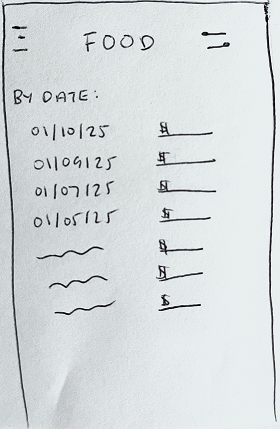 FOOD
BY DATE:
01/10/25 $
01/09/25 $
01/07/25 $
01/05/25 $
$
$
$